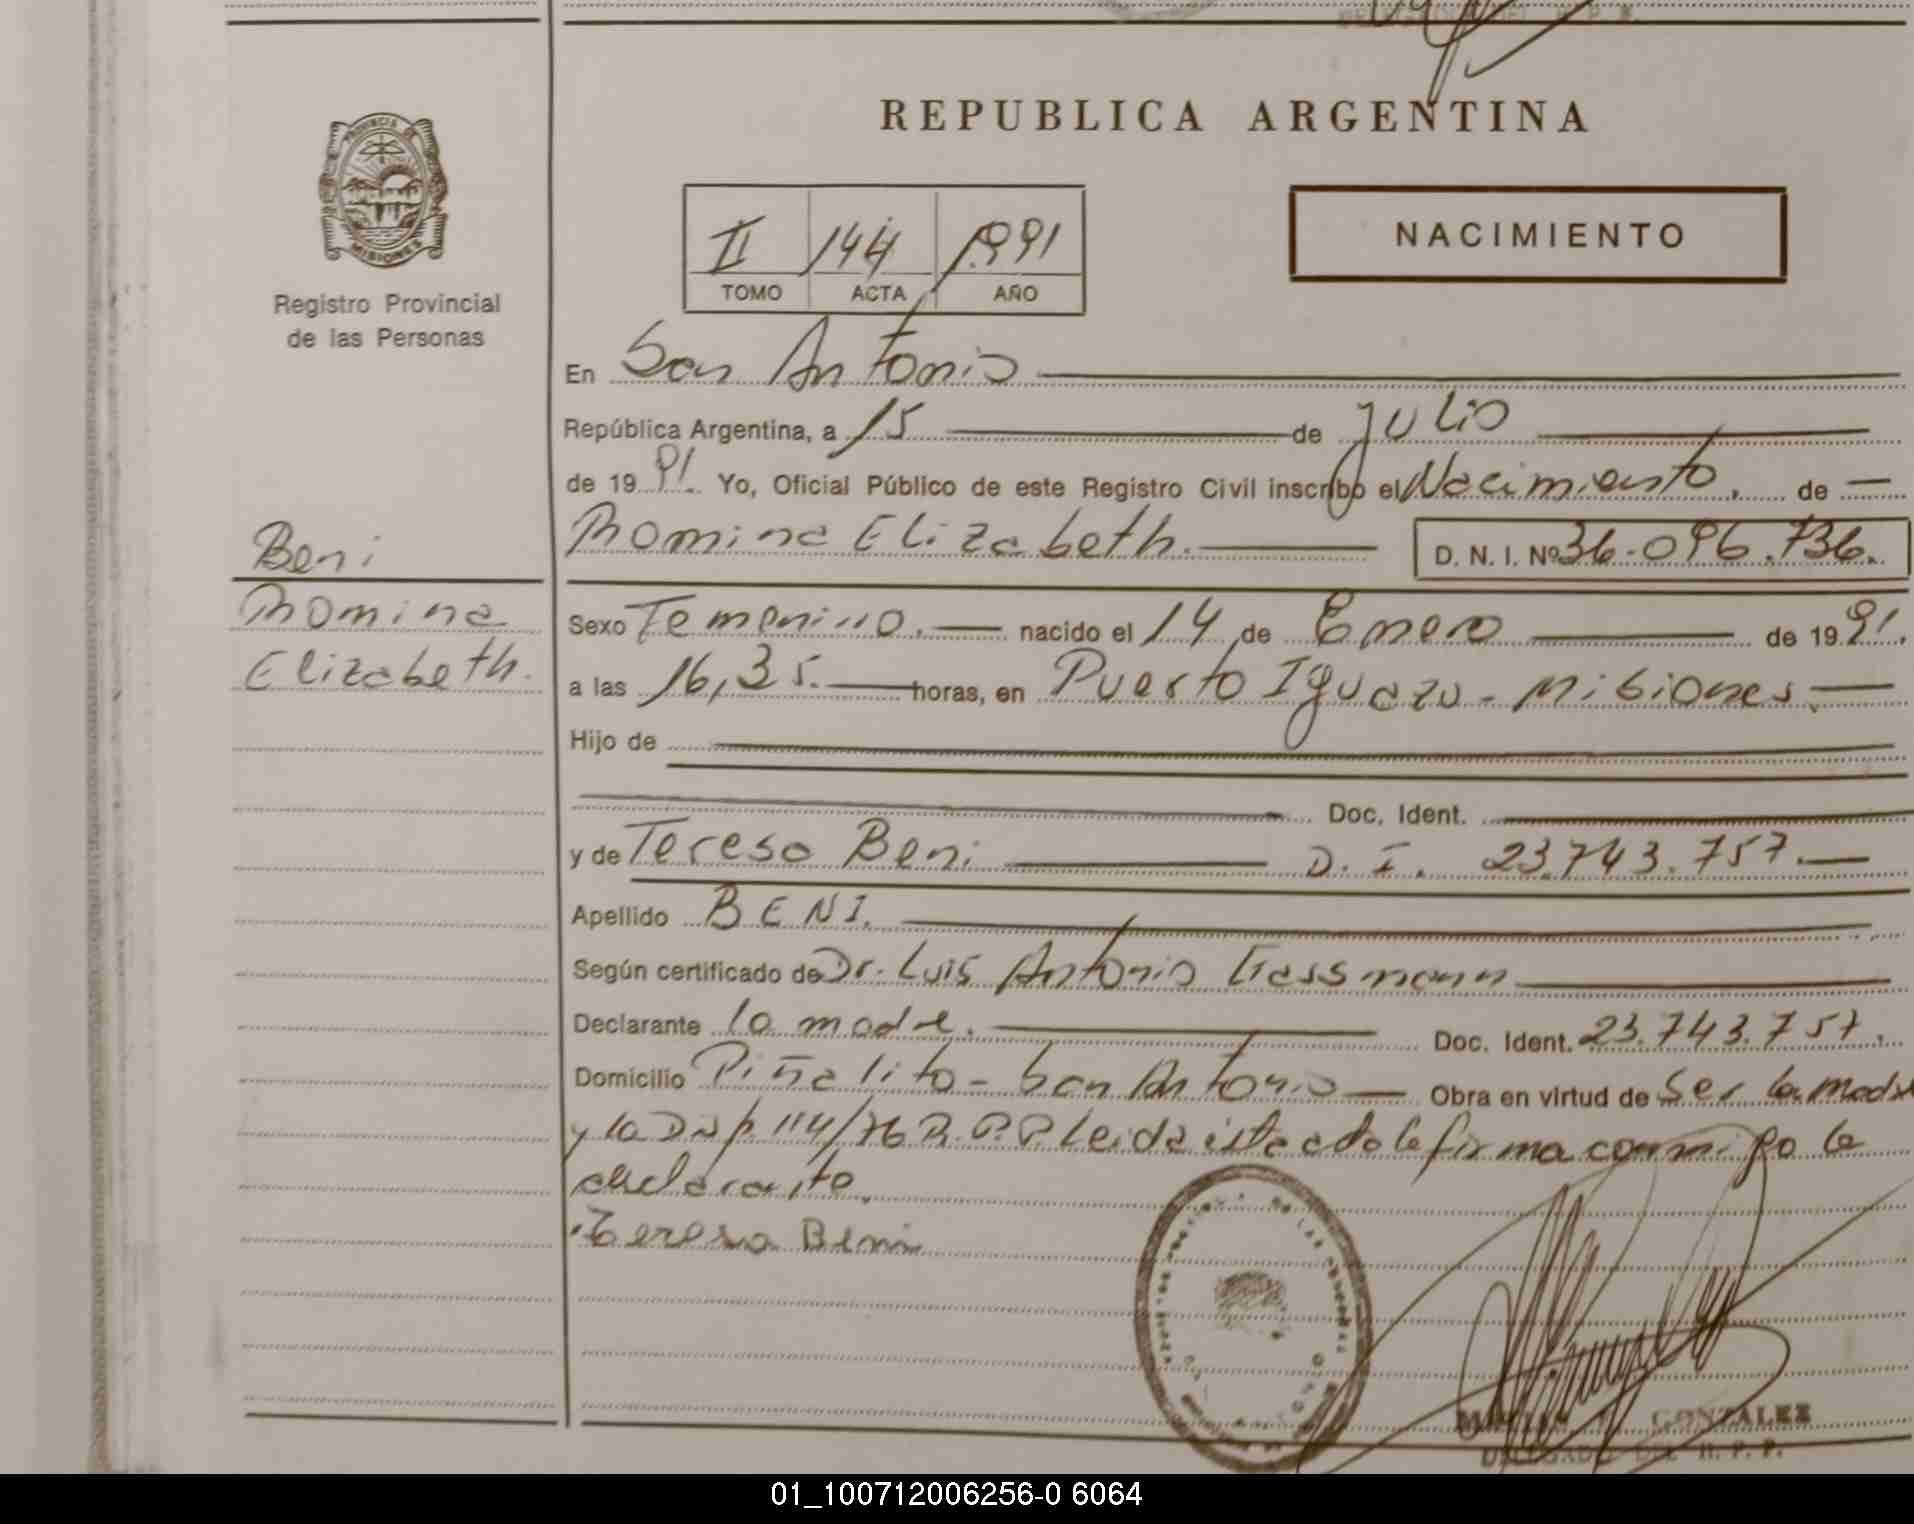 REPUBLICA ARGENTINA
PROVINCIA DE
MISIONES
Registro Provincial
de las Personas
II 144 1.991
TOMO ACTA AÑO
NACIMIENTO
En San Antonio
República Argentina, a 15 de Julio
de 1991. Yo, Oficial Público de este Registro Civil inscribo el Nacimiento. de
Beni
Romina Elizabeth. D. N. I. Nº 36.096.736.
Romina
Elizabeth.
Sexo Femenino. nacido el 14 de Enero de 1991.
a las 16,35. horas, en Puerto Iguazu - Misiones.
Hijo de
Doc. Ident.
y de Teresa Beni D. I. 23.743.757.
Apellido BENI.
Según certificado de Dr. Luis Antonio
Declarante la madre. Doc. Ident. 23.743.757.
Domicilio Piñalito - San Antonio Obra en virtud de Ser la madre
y la 114/76 R.P.P. Leida este acta la firma conmigo la
declarante.
Teresa Beni
GONZALEZ
DELEGADO DEL R. P. P.
01_100712006256-0 6064